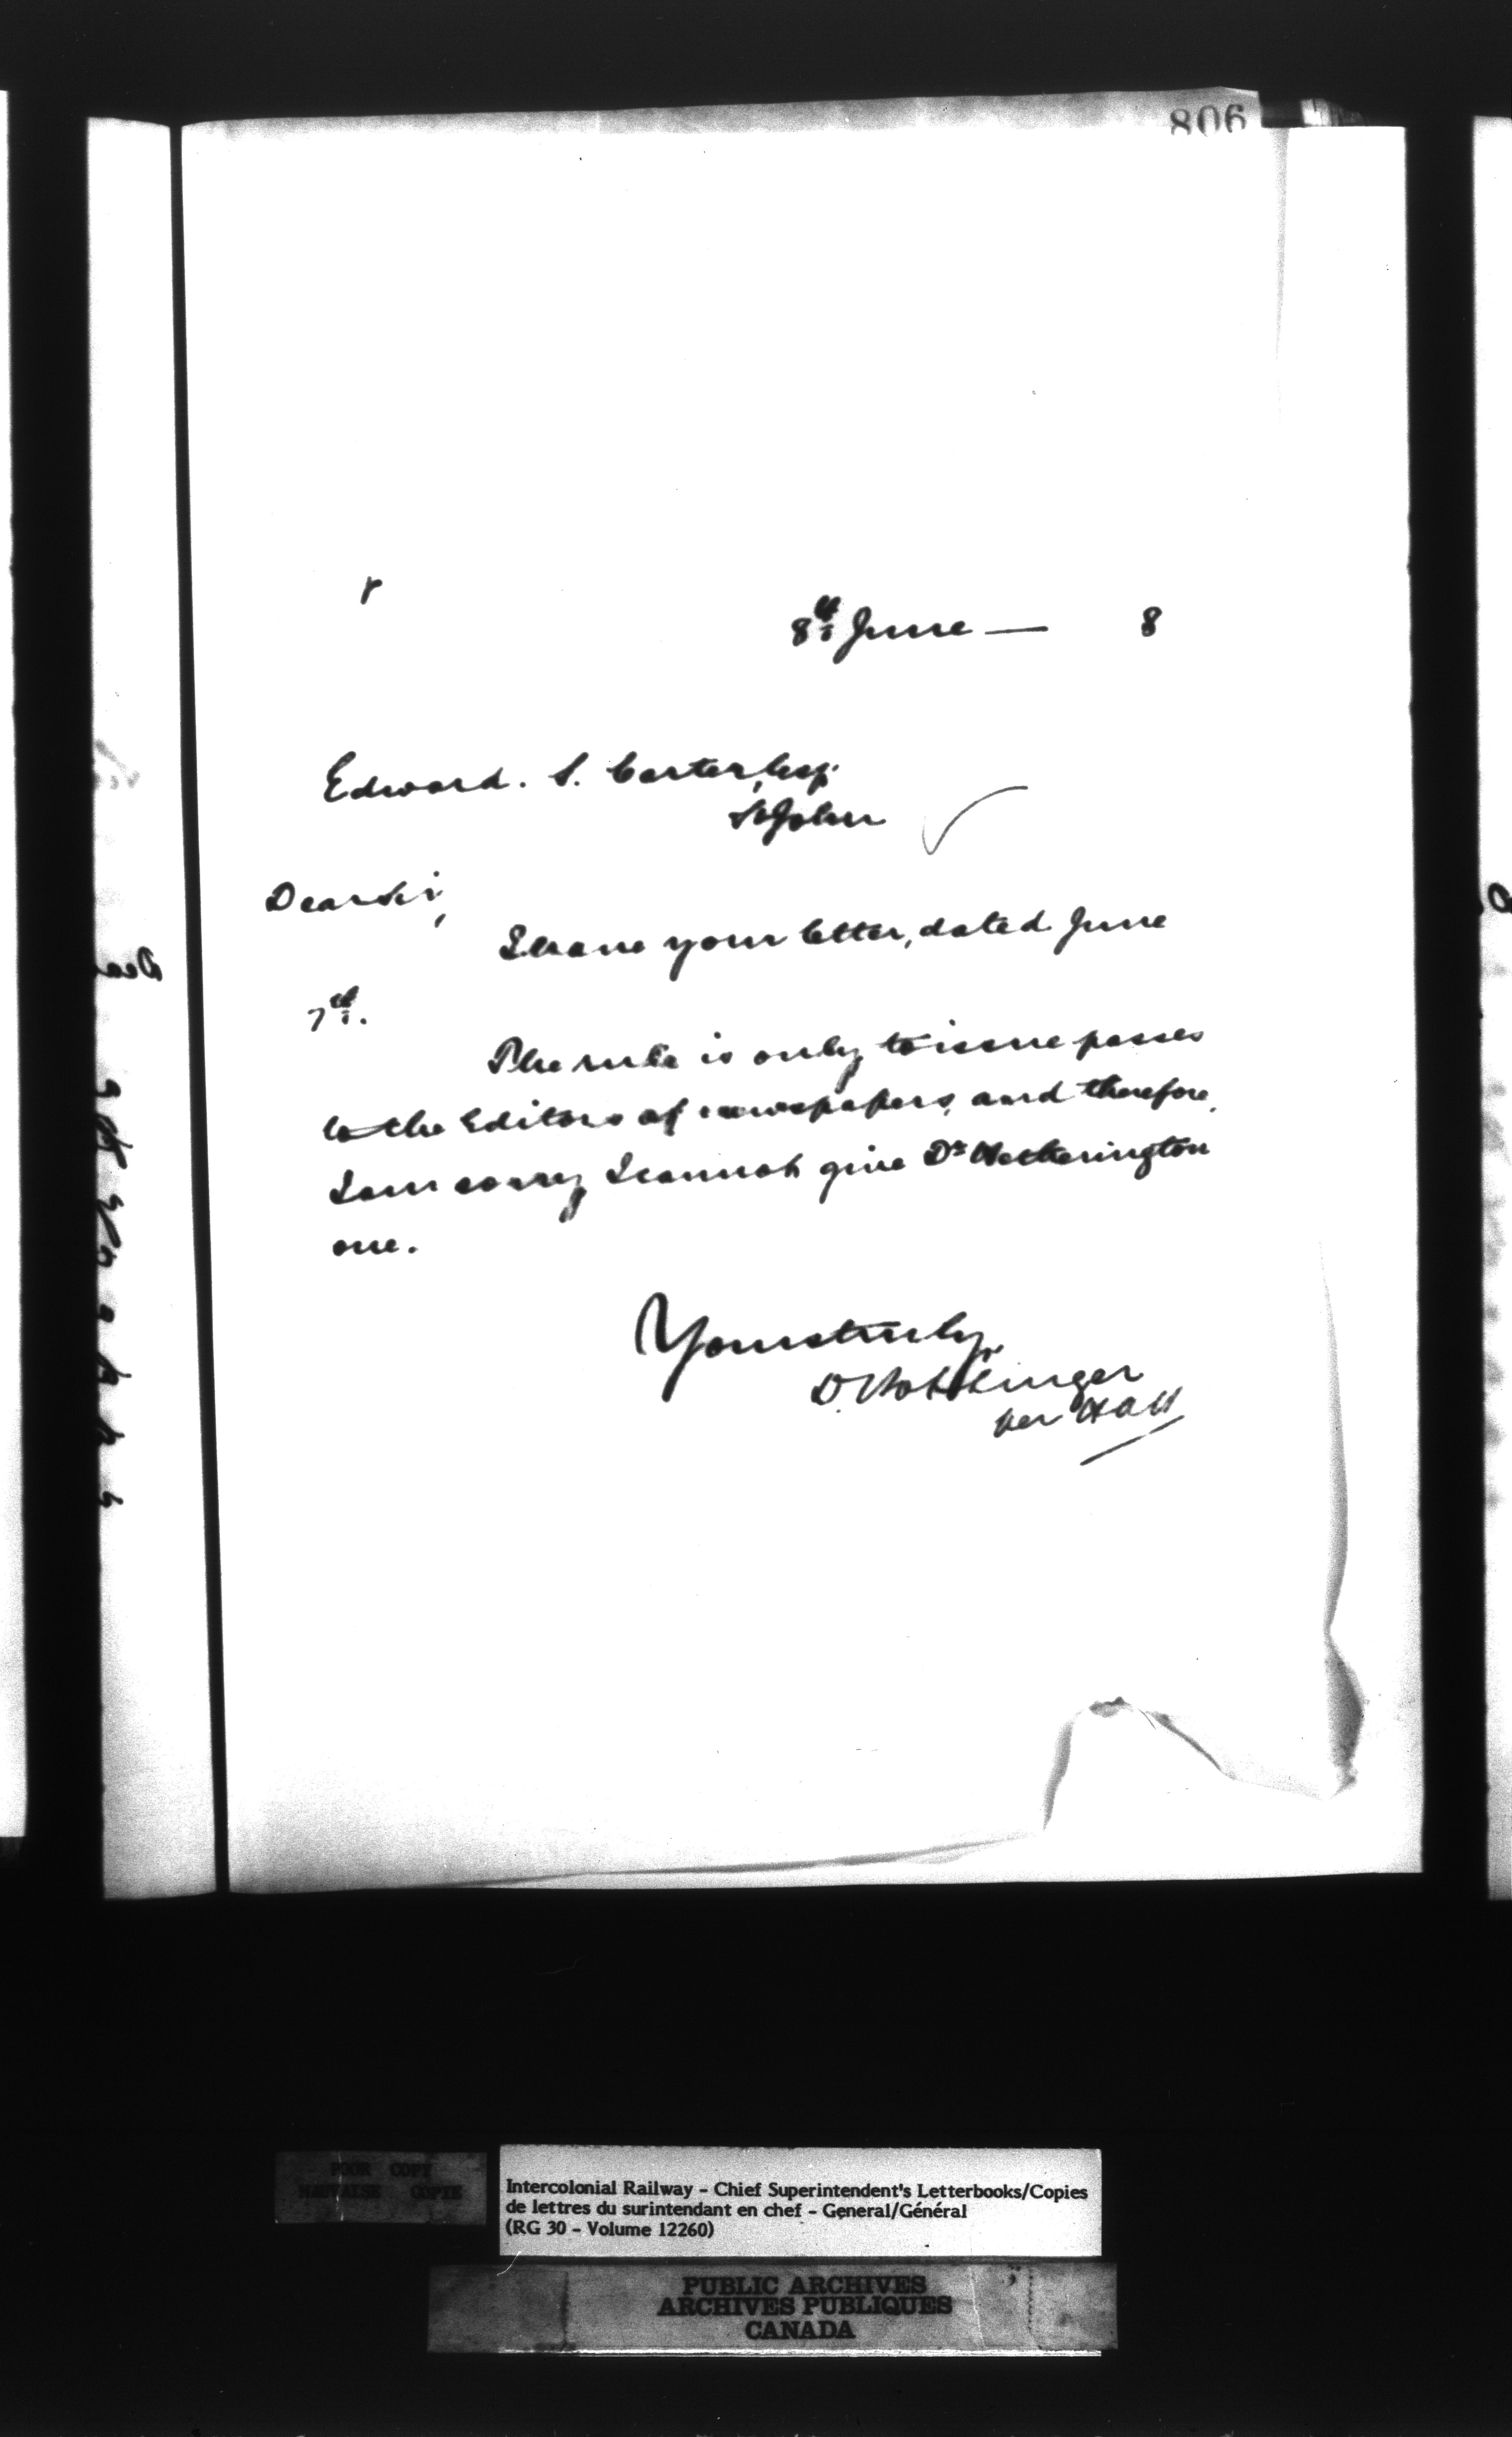 806
r
8th June — 8
Edward. S. Carter, Esq.
St John
Dear Sir,
I have your letter, dated June
7th.
The rule is only to issue passes
to the Editors of newspapers, and therefore,
I am sorry I cannot give Dr Hetherington
one.
Yours truly,
D. Pottinger
per
POOR COPY
MAUVAISE COPIE
Intercolonial Railway - Chief Superintendent's Letterbooks/Copies
de lettres du surintendant en chef - General/Général
(RG 30 - Volume 12260)
PUBLIC ARCHIVES
ARCHIVES PUBLIQUES
CANADA